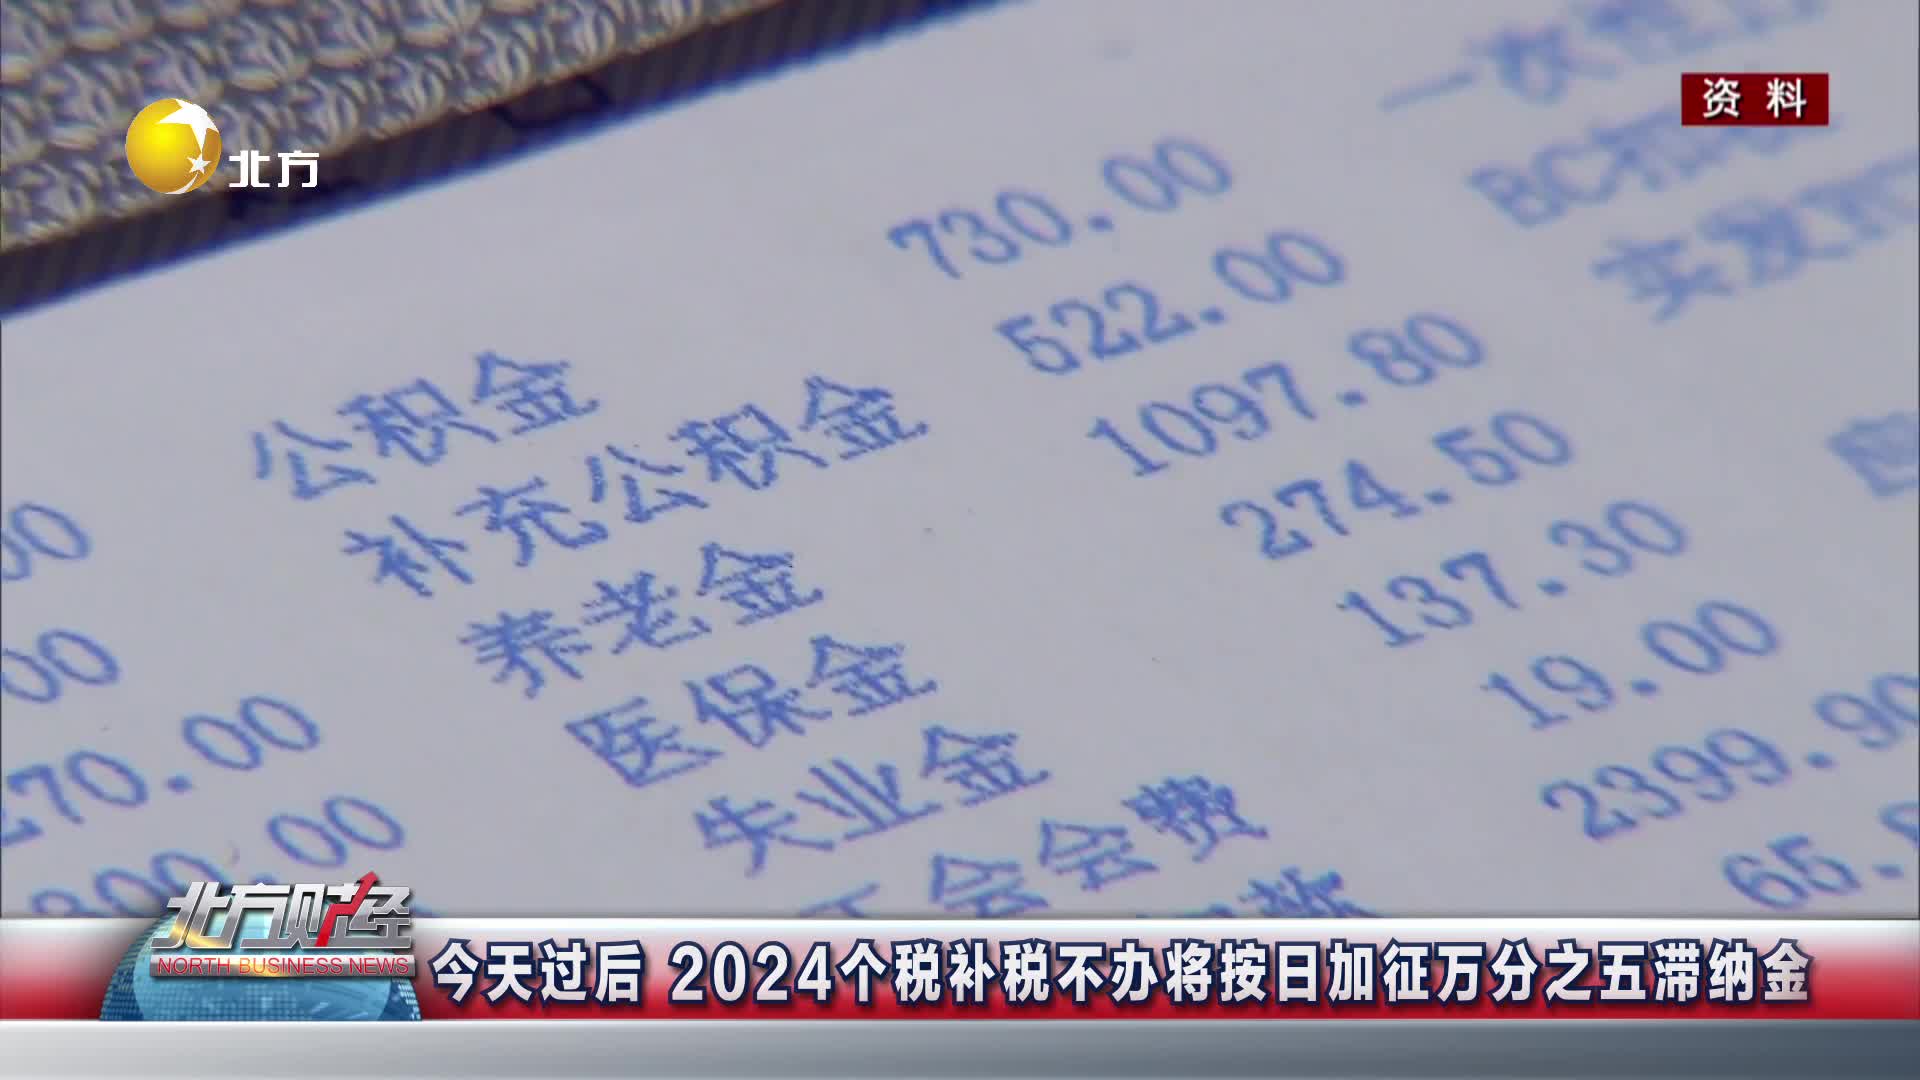 资料
北方
730.00
522.00
公积金 1097.80
补充公积金 274.50
养老金 137.30
医保金 19.00
失业金 2399.90
工会会费 65.
00
00
270.00
300.00
一次性
BC
实发
北方财经
NORTH BUSINESS NEWS
今天过后 2024个税补税不办将按日加征万分之五滞纳金